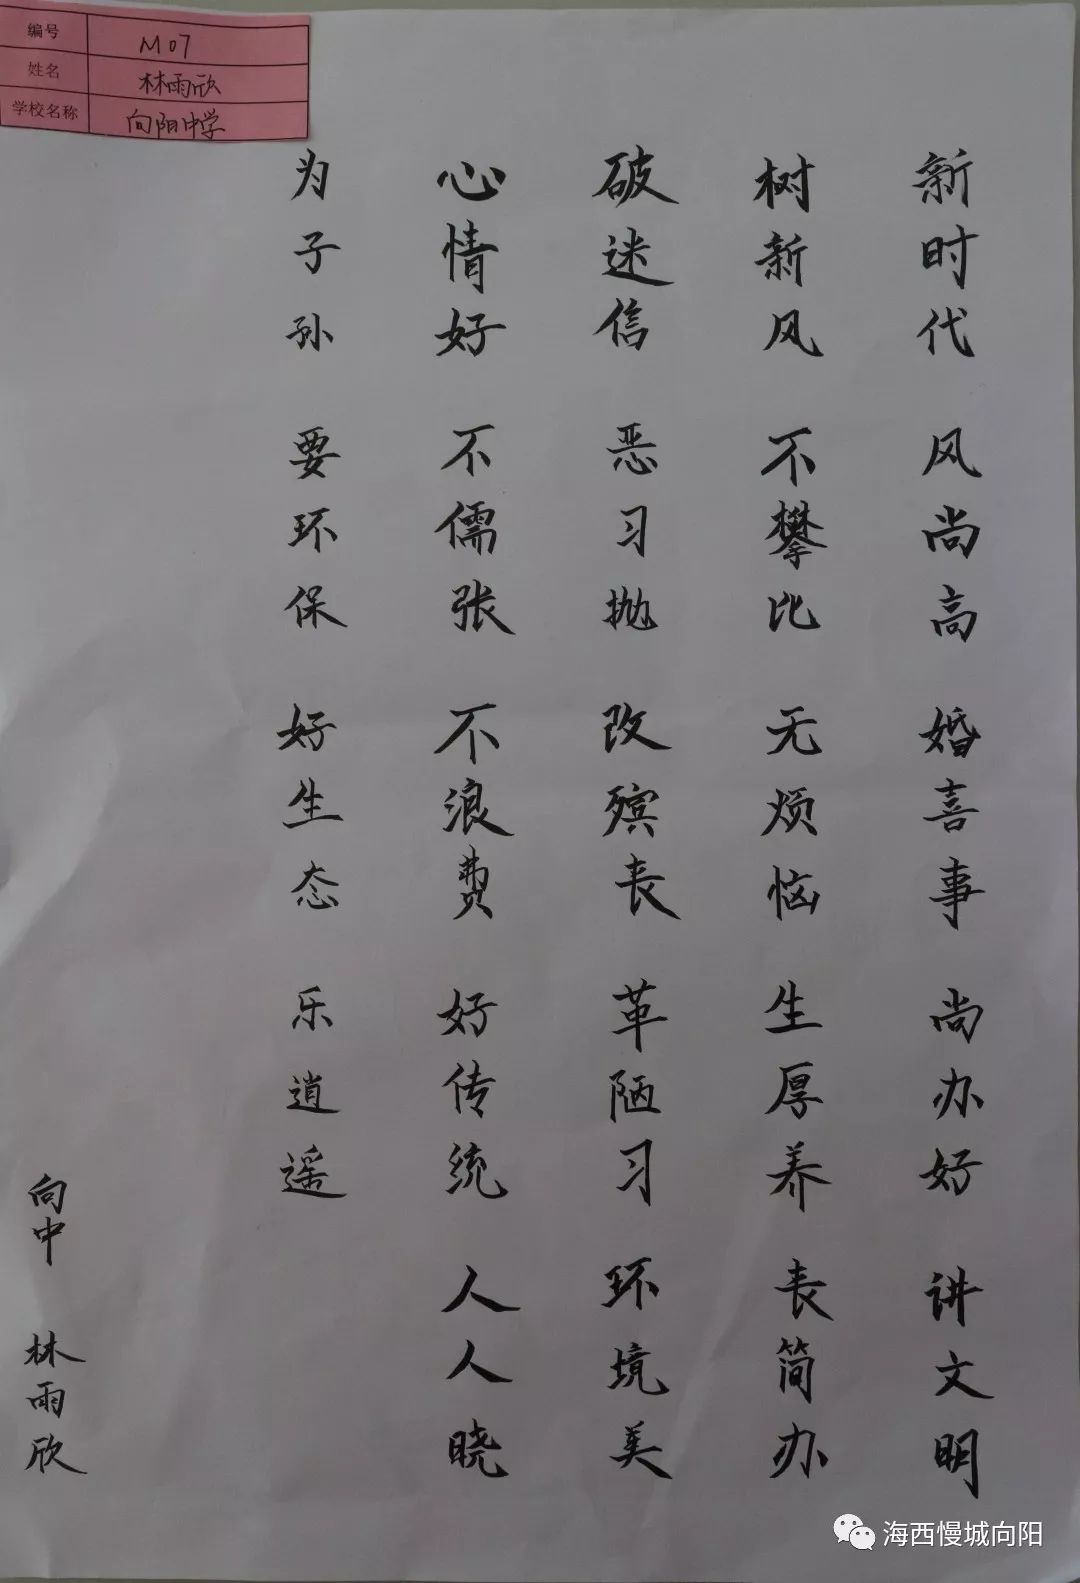 编号 M07
姓名 林雨欣
学校名称 向阳中学
新时代 风尚高 婚喜事 尚办好 讲文明
树新风 不攀比 无烦恼 生厚养 丧简办
破迷信 恶习抛 改殡丧 革陋习 环境美
心情好 不儒张 不浪费 好传统 人人晓
为子孙 要环保 好生态 乐逍遥
向中 林雨欣
海西慢城向阳